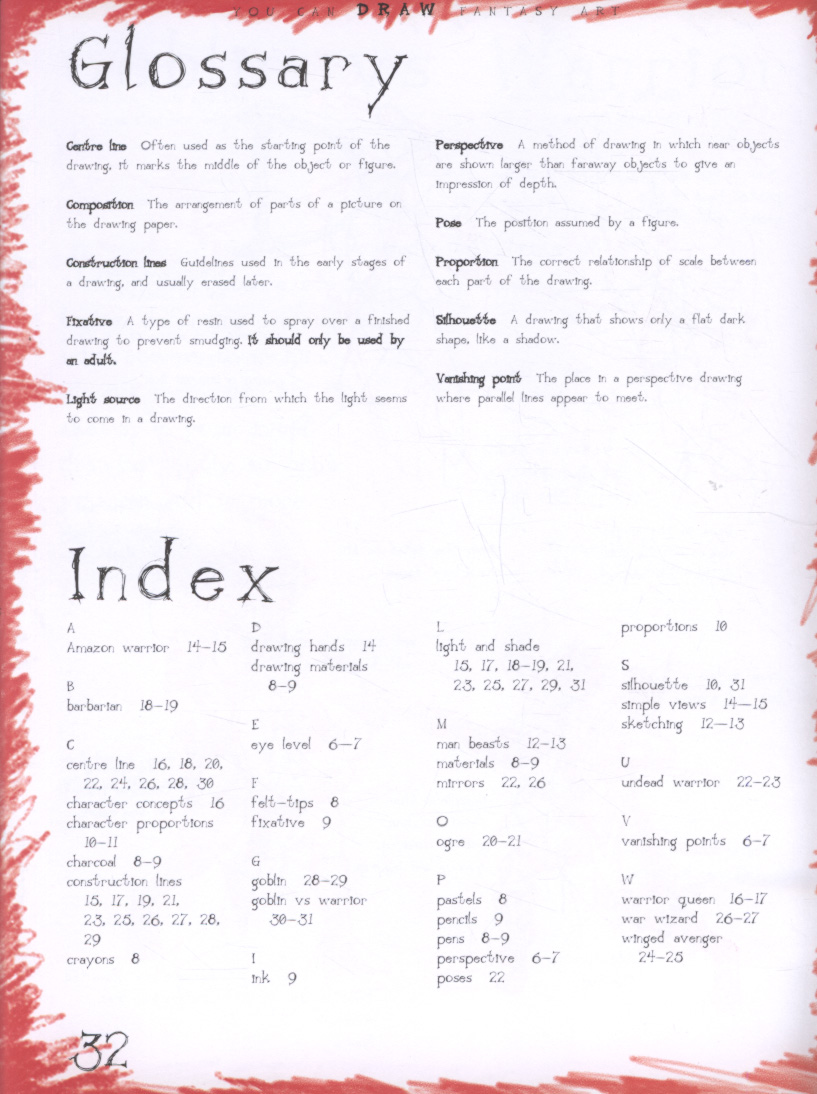 YOU CAN DRAW FANTASY ART
Glossary
Centre line Often used as the starting point of the
drawing, it marks the middle of the object or figure.
Composition The arrangement of parts of a picture on
the drawing paper.
Construction lines Guidelines used in the early stages of
a drawing, and usually erased later.
Fixative A type of resin used to spray over a finished
drawing to prevent smudging. It should only be used by
an adult.
Light source The direction from which the light seems
to come in a drawing.
Perspective A method of drawing in which near objects
are shown larger than faraway objects to give an
impression of depth.
Pose The position assumed by a figure.
Proportion The correct relationship of scale between
each part of the drawing.
Silhouette A drawing that shows only a flat dark
shape, like a shadow.
Vanishing point The place in a perspective drawing
where parallel lines appear to meet.
Index
A
Amazon warrior 14–15
B
barbarian 18–19
C
centre line 16, 18, 20,
22, 24, 26, 28, 30
character concepts 16
character proportions
10–11
charcoal 8–9
construction lines
15, 17, 19, 21,
23, 25, 26, 27, 28,
29
crayons 8
D
drawing hands 14
drawing materials
8–9
E
eye level 6–7
F
felt-tips 8
fixative 9
G
goblin 28–29
goblin vs warrior
30–31
I
ink 9
L
light and shade
15, 17, 18–19, 21,
23, 25, 27, 29, 31
M
man beasts 12–13
materials 8–9
mirrors 22, 26
O
ogre 20–21
P
pastels 8
pencils 9
pens 8–9
perspective 6–7
poses 22
proportions 10
S
silhouette 10, 31
simple views 14–15
sketching 12–13
U
undead warrior 22–23
V
vanishing points 6–7
W
warrior queen 16–17
war wizard 26–27
winged avenger
24–25
32